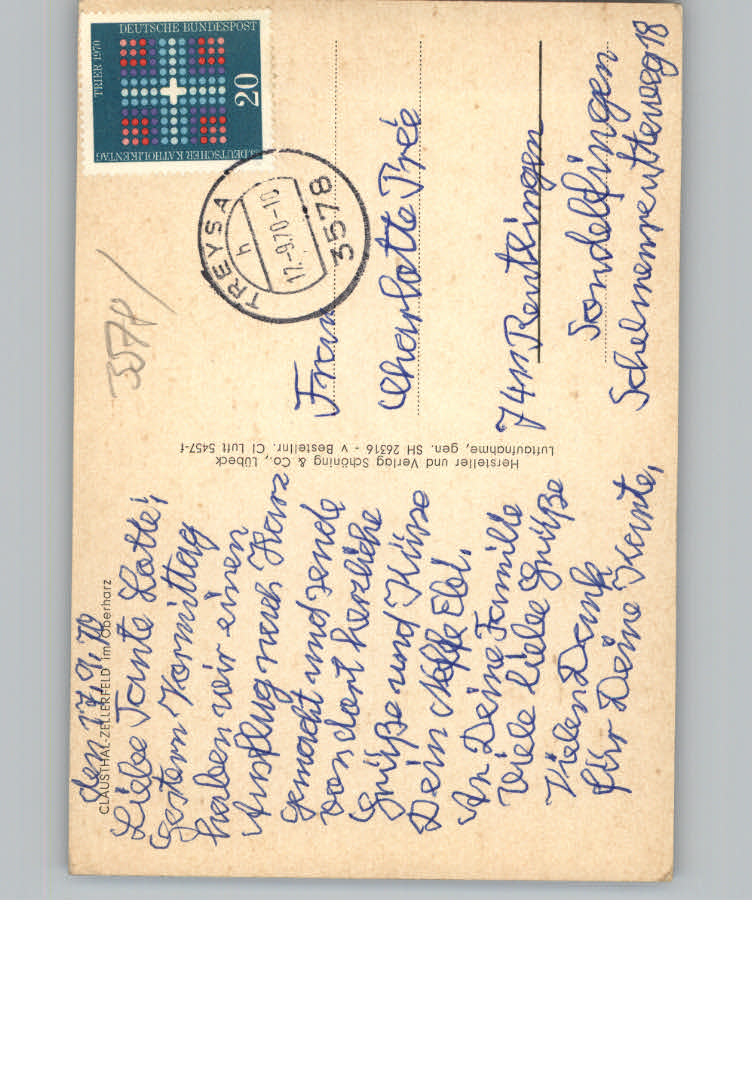 CLAUSTHAL-ZELLERFELD im Oberharz
den 17.9.70
Liebe Tante Lotte!
Gestern Vormittag
haben wir einen
Ausflug nach Harz
gemacht und sende
von dort herzliche
Grüße und Küsse
Dein Neffe Ebi.
An Deine Familie
Viele liebe Grüße
Vielen Dank
für Deine Karte,
Hersteller und Verlag Schöning & Co., Lübeck
Luftaufnahme, gen. SH 26316 - v Bestellnr. Cl Luft 5457-f
DEUTSCHE BUNDESPOST
TRIER 1970
20
DEUTSCHER KATHOLIKENTAG
TREYSA
h
17.-9.70-10
3578
3578/
Frau
Charlotte Prée
7411 Reutlingen
Sondelfingen
Schelmenreuteweg 18